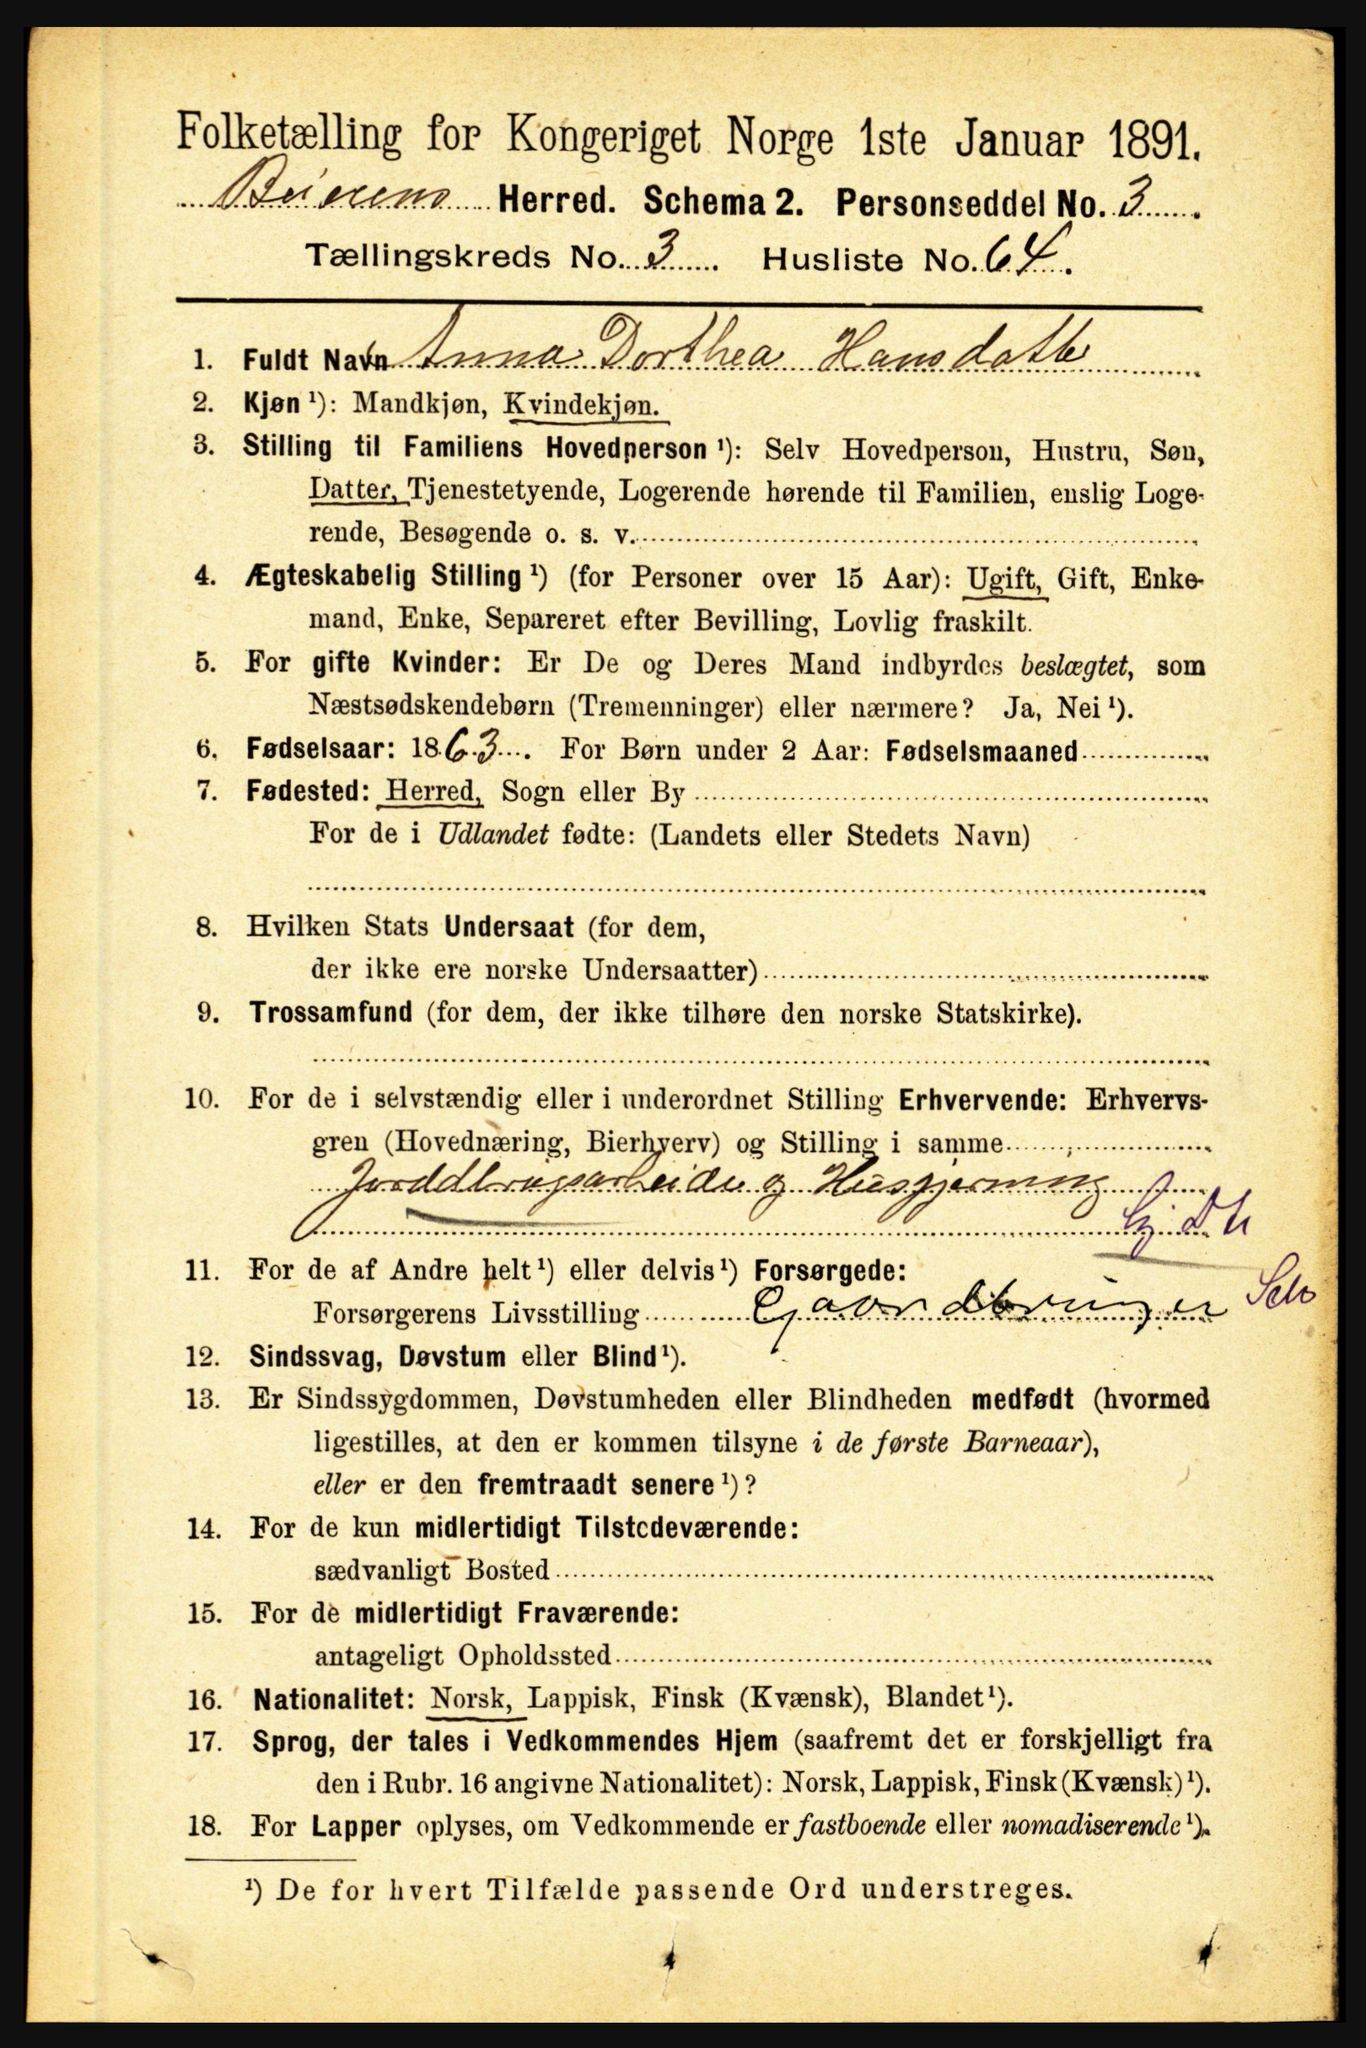 Folketælling for Kongeriget Norge 1ste Januar 1891.
Beierens Herred. Schema 2. Personseddel No. 3.
Tællingskreds No. 3. Husliste No. 64.
1. Fuldt Navn Anna Dorthea Hansdatte
2. Kjøn ¹): Mandkjøn, Kvindekjøn.
3. Stilling til Familiens Hovedperson ¹): Selv Hovedperson, Hustru, Søn,
Datter, Tjenestetyende, Logerende hørende til Familien, enslig Loge-
rende, Besøgende o. s. v.
4. Ægteskabelig Stilling ¹) (for Personer over 15 Aar): Ugift, Gift, Enke-
mand, Enke, Separeret efter Bevilling, Lovlig fraskilt.
5. For gifte Kvinder: Er De og Deres Mand indbyrdes beslægtet, som
Næstsødskendebørn (Tremenninger) eller nærmere? Ja, Nei ¹).
6. Fødselsaar: 1863. For Børn under 2 Aar: Fødselsmaaned
7. Fødested: Herred, Sogn eller By
For de i Udlandet fødte: (Landets eller Stedets Navn)
8. Hvilken Stats Undersaat (for dem,
der ikke ere norske Undersaatter)
9. Trossamfund (for dem, der ikke tilhøre den norske Statskirke).
10. For de i selvstændig eller i underordnet Stilling Erhvervende: Erhvervs-
gren (Hovednæring, Bierhverv) og Stilling i samme
Jorddbrugsarbeide og Husgjerning
11. For de af Andre helt ¹) eller delvis ¹) Forsørgede:
Forsørgerens Livsstilling Gaardbruger
12. Sindssvag, Døvstum eller Blind ¹).
13. Er Sindssygdommen, Døvstumheden eller Blindheden medfødt (hvormed
ligestilles, at den er kommen tilsyne i de første Barneaar),
eller er den fremtraadt senere ¹)?
14. For de kun midlertidigt Tilstedeværende:
sædvanligt Bosted
15. For de midlertidigt Fraværende:
antageligt Opholdssted
16. Nationalitet: Norsk, Lappisk, Finsk (Kvænsk), Blandet ¹).
17. Sprog, der tales i Vedkommendes Hjem (saafremt det er forskjelligt fra
den i Rubr. 16 angivne Nationalitet): Norsk, Lappisk, Finsk (Kvænsk) ¹).
18. For Lapper oplyses, om Vedkommende er fastboende eller nomadiserende ¹).
¹) De for hvert Tilfælde passende Ord understreges.